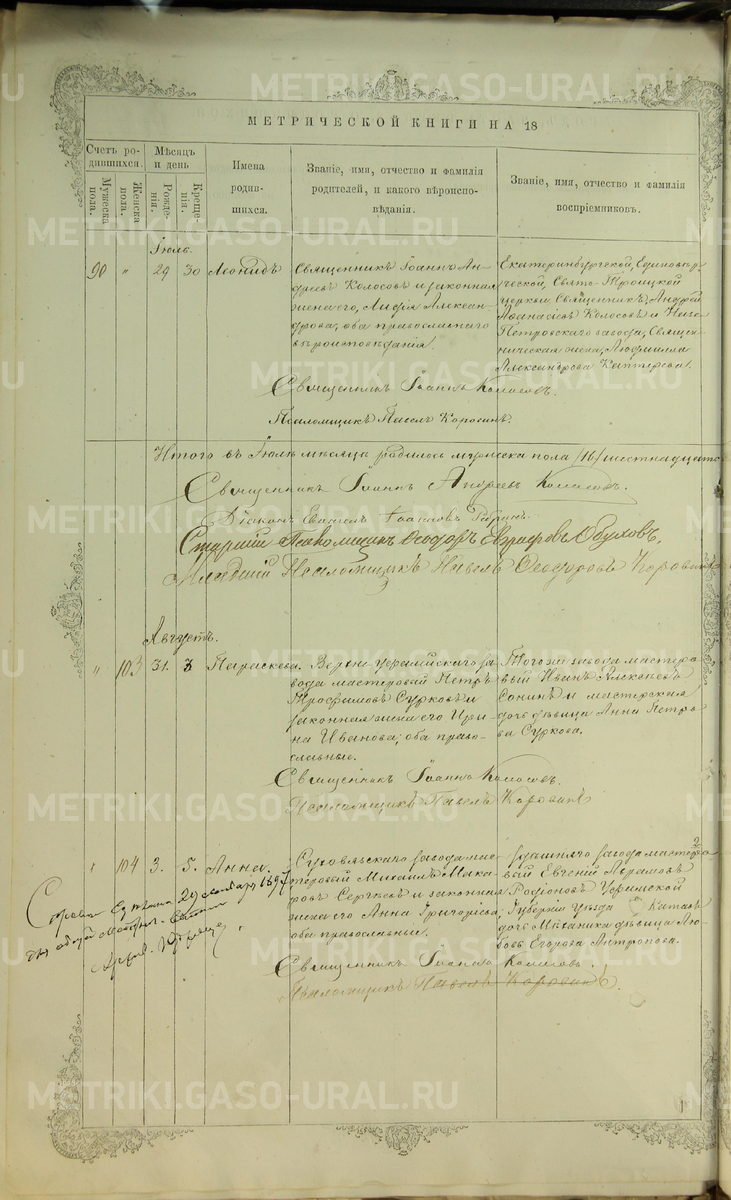 МЕТРИЧЕСКОЙ КНИГИ НА 18
Счетъ ро-
дившихся.
Мѣсяцъ
и день
Мужеска
пола.
Женска
пола.
Рожде-
нія.
Креще-
нія.
Имена
родив-
шихся.
Званіе, имя, отчество и фамилія
родителей, и какого вѣроиспо-
вѣданія.
Званіе, имя, отчество и фамилія
воспріемниковъ.
Іюль.
90 " 29 30 Леонидъ
Священникъ Іоаннъ Ан-
дреевъ Колосовъ и законная
жена его, Лидія Алексан-
дрова; оба православнаго
вѣроисповѣданія.
Екатеринбургской, Единовѣр-
ческой, Свято-Троицкой
церкви Священникъ, Андрей
Аѳанасіевъ Колосовъ и Ниже
Петровскаго завода, Священ-
ническая жена, Людмила
Александрова Каптерева.
Священникъ Іоаннъ Колосовъ.
Псаломщикъ Павелъ Коровинъ.
Итого въ Іюлѣ мѣсяцѣ родилось мужеска пола /16/ шестнадцать
Священникъ Іоаннъ Андреевъ Колосовъ.
Діаконъ Іоанновъ
Старшій Псаломщикъ Ѳеодоръ Евграфовъ Обуховъ.
Младшій Псаломщикъ Павелъ Ѳеодоровъ Коровинъ
Августъ.
" 103 31. 3 Параскева.
Верхне-Уфалейскаго за-
вода мастеровой Петръ
Трофимовъ Сурковъ и
законная жена его Ири-
на Иванова; оба право-
славные.
Того же завода мастеро-
вый Иванъ Алексѣевъ
Сонинъ и мастерская
дочь дѣвица Анна Петро-
ва Суркова.
Священникъ Іоаннъ Колосовъ.
Псаломщикъ Павелъ Коровинъ
" 104 3. 5. Анна.
Суховязскаго завода мас-
теровый Михаилъ Мака-
ровъ Сергѣевъ и законная
жена его Анна Григоріева,
оба православные.
здѣшняго завода мастеро-
вый Евгеній Аврамовъ
Родіоновъ Уфимской
Губерніи Уѣзда
дочь Механика дѣвица Лю-
бовь Егорова Антропова.
Священникъ Іоаннъ Колосовъ.
Псаломщикъ Павелъ Коровинъ.
29 1897
METRIKI.GASO-URAL.RU